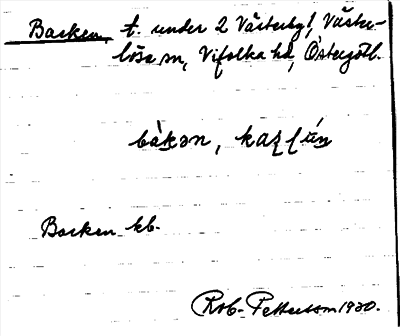 Backen, t. under 2 Västerby, Väster-
lösa sn, Vifolka hd, Östergötl.
bàkən,
Backen kb.
Rob. Pettersson 1930.